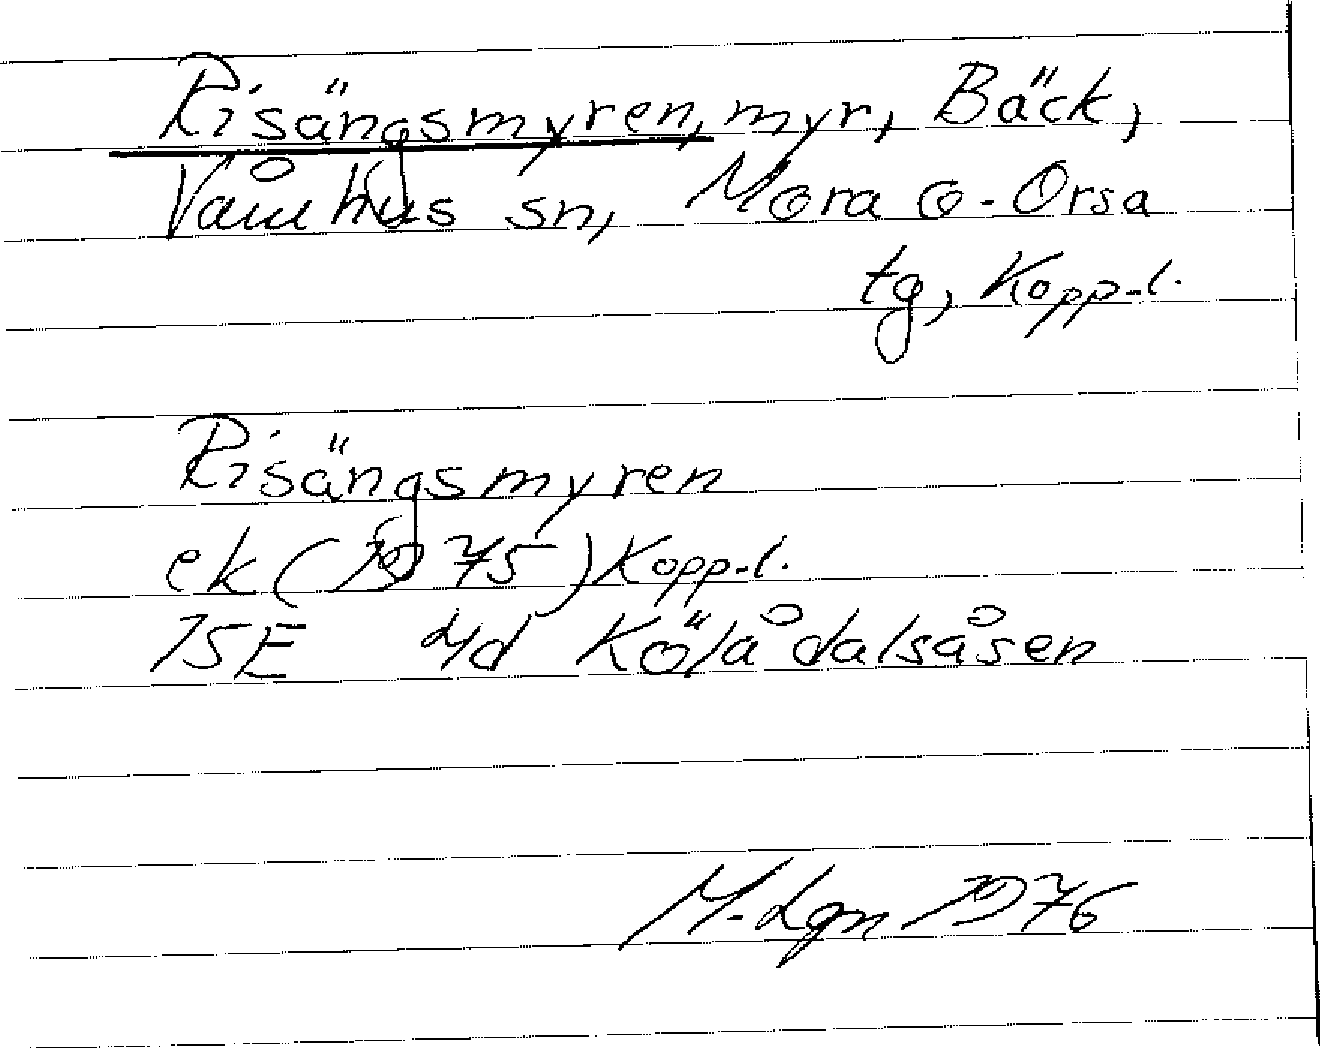 Risängsmyren, myr, Bäck,
Våmhus sn, Mora o. Orsa
tg, Kopp.l.
Risängsmyren
ek (1975) Kopp.l.
15E 4d Kölådalsåsen
M. Lgn 1976